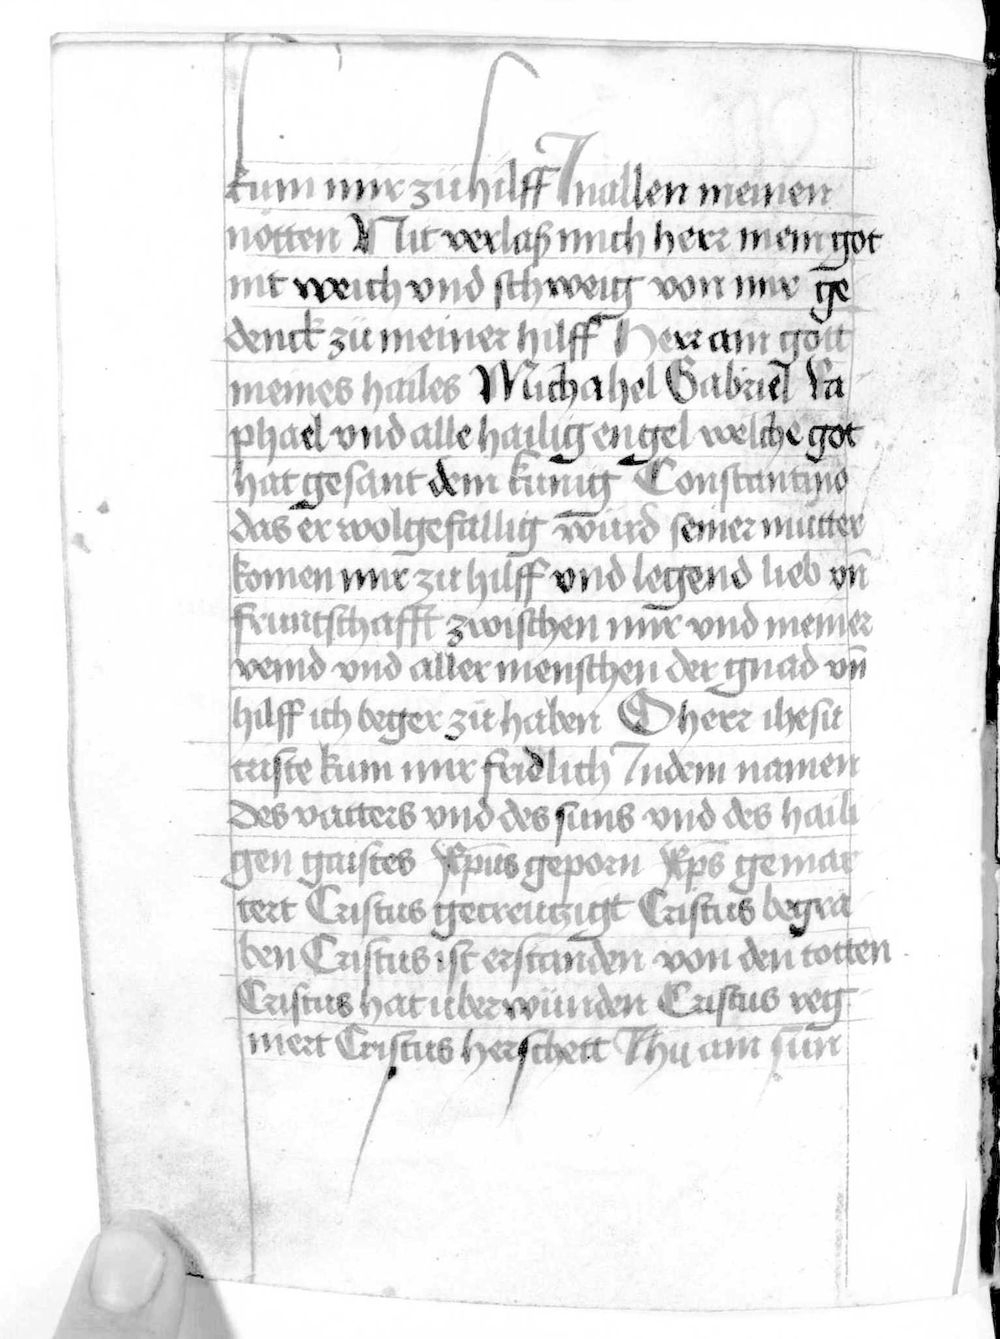 kum mir zu hilff In allen meinen
nötten Nit verlaß mich herr mein got
nit weich vnd schweig von mir ge
denck zů meiner hilff Herr ain gott
meines hailes Michahel Gabriel Ra
phael vnd alle hailig engel welche got
hat gesant dem künig Constantino
das er wolgefallig würd seiner mütter
komen mir zu hilff vnd legend lieb vn̄
fruntschafft zwischen mir vnd meiner
veind vnd aller menschen der gnad vn̄
hilff ich beger zů haben O herr ihesu
criste kum mir fridlich In dem namen
des vatters vnd des suns vnd des haili
gen gaistes Xp̄us geporn Xp̄s gemar
tert Cristus gecreutzigt Cristus begra
ben Cristus ist erstanden von den totten
Cristus hat uberwünden Cristus reg
niert Cristus herschett Ihū ain sun